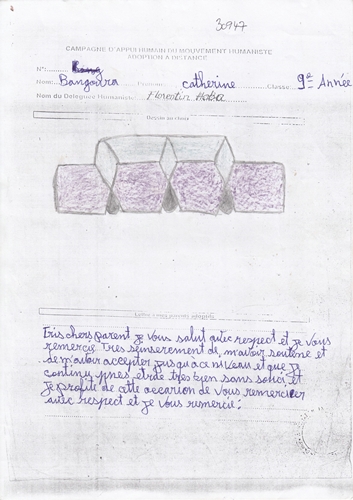 30947
CAMPAGNE D'APPUI HUMAIN DU MOUVEMENT HUMANISTE
ADOPTION A DISTANCE
N°:
Nom: Bangoura Prenom: catherine Classe: 9e Année
Nom du Délégué Humaniste: Florentin Haba
Dessin au choix
Lettre à mes parents adoptifs
Très chers parent je vous salut avec respect et je vous
remercie très sinserement de, m'avoir soutenu et
de m'avoir accepter jusqu'a ce niveau et que je
continu mes etude très bien sans souci et
je profite de cette occarion de vous remercier
avec respect et je vous remercie: